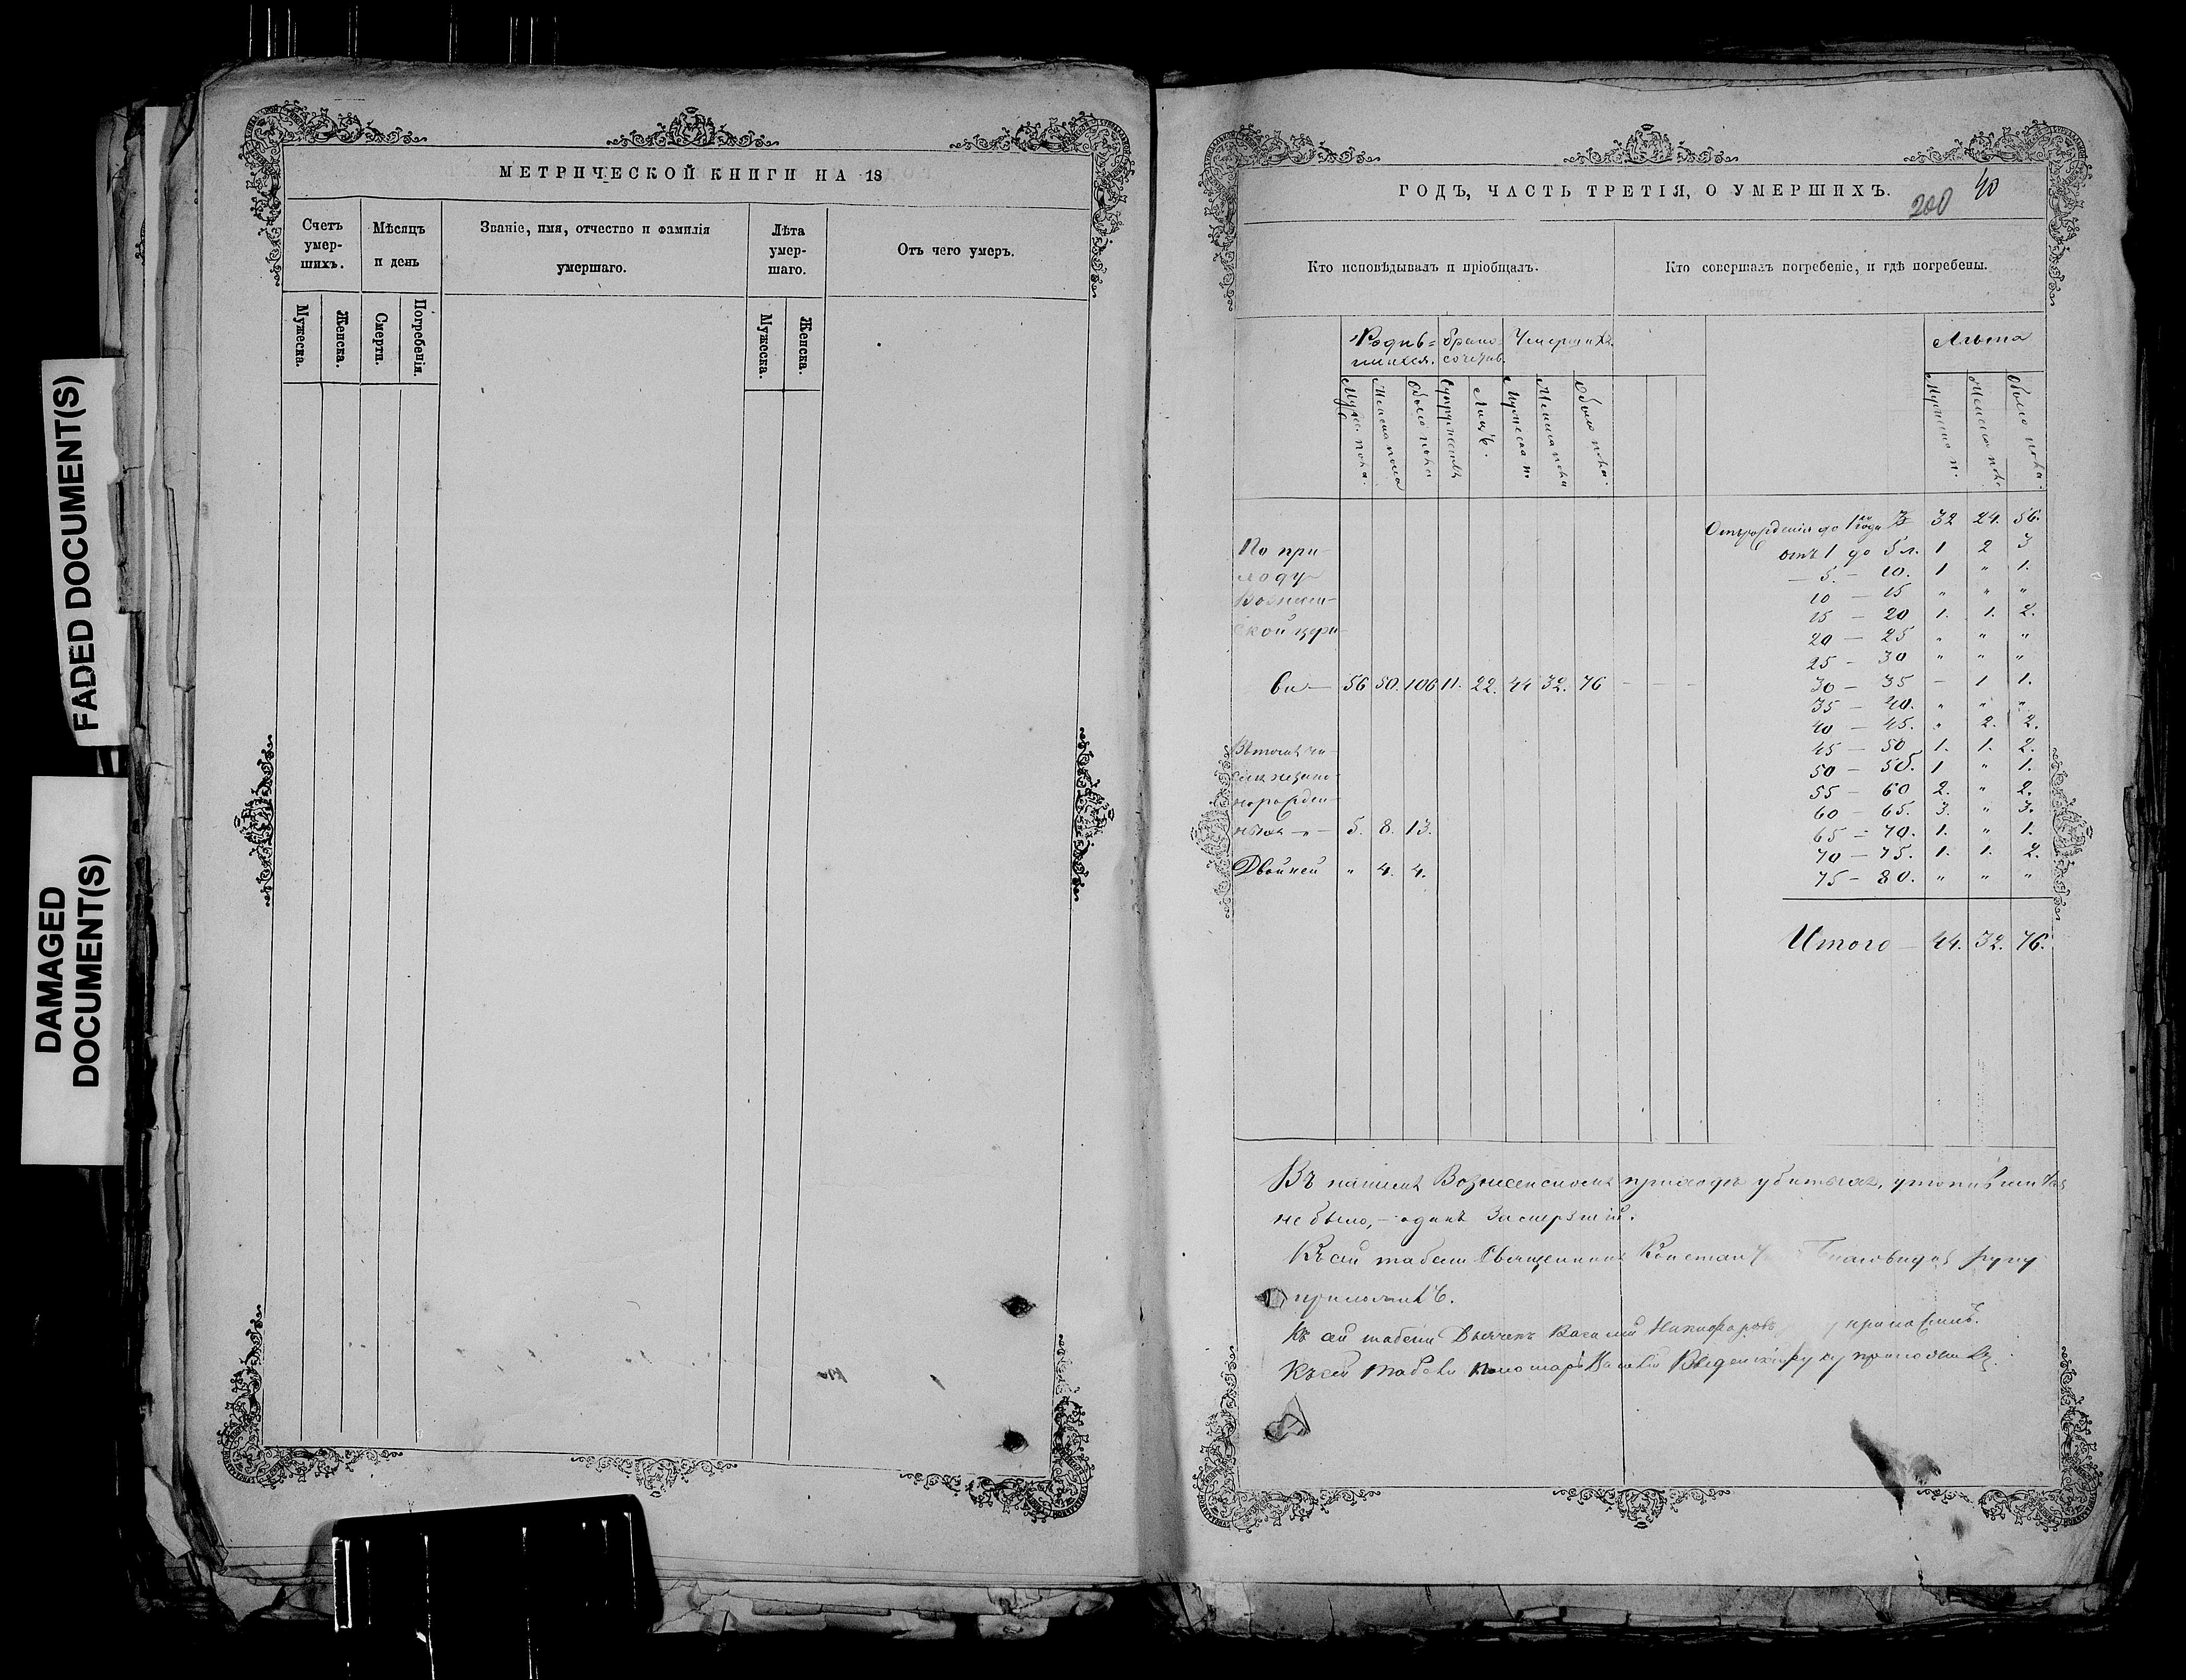 FADED DOCUMENT(S)
DAMAGED
DOCUMENT(S)
МЕТРИЧЕСКОЙ КНИГИ НА 18
Счетъ умер-шихъ.
Мѣсяцъ и день
Званіе, имя, отчество и фамилія
умершаго.
Лѣта умер-шаго.
Отъ чего умеръ.
Мужеска.
Женска.
Смерти.
Погребенія.
Мужеска.
Женска.
ГОДЪ, ЧАСТЬ ТРЕТІЯ, О УМЕРШИХЪ.
200
40
Кто исповѣдывалъ и пріобщалъ.
Кто совершалъ погребеніе, и гдѣ погребены.
Родив=
шихся.
Брако
сочетав.
Умершихъ
Муж. пола.
Женска пола
Обоего пола
Супружествъ
Лицъ.
Мужеска п.
Женска пола
Обоего пола.
Лѣта
Мужеска п.
Женска пола
Обоего пола.
По при-
ходу
Вознесен-
ской церк-
ви — 56 50. 106 11. 22. 44 32. 76 - - -
Въ томъ чи-
слѣ незако-
норожден-
ныхъ - " - 5. 8. 13.
Двойней " 4. 4.
Отъ рожденія до 1го года 32 24. 56.
отъ 1 до 5 л. 1 2 3
— 5. — 10. 1 " 1.
10 — 15 " " "
15 — 20 1. 1. 2.
20 — 25 " " "
25 - 30 " " "
30 — 35 - 1 1.
35 - 40. " " "
40 - 45. " 2. 2.
45 - 50 1. 1. 2.
50 - 55. 1 " 1.
55 - 60 2. " 2.
60 - 65. 3. " 3.
65 - 70. 1. " 1.
70 - 75. 1. 1. 2.
75 - 80. " " "
Итого — 44. 32. 76.
Въ нашемъ Вознесенскомъ приходѣ убитыхъ, утопившихъ
не было, - одинъ
Къ сей табели Священникъ Константи руку
приложилъ.
Къ сей табели Дьячекъ Василій Никифоровъ приложилъ.
Къ сей табели пономарь Василій Введенскій руку приложилъ.